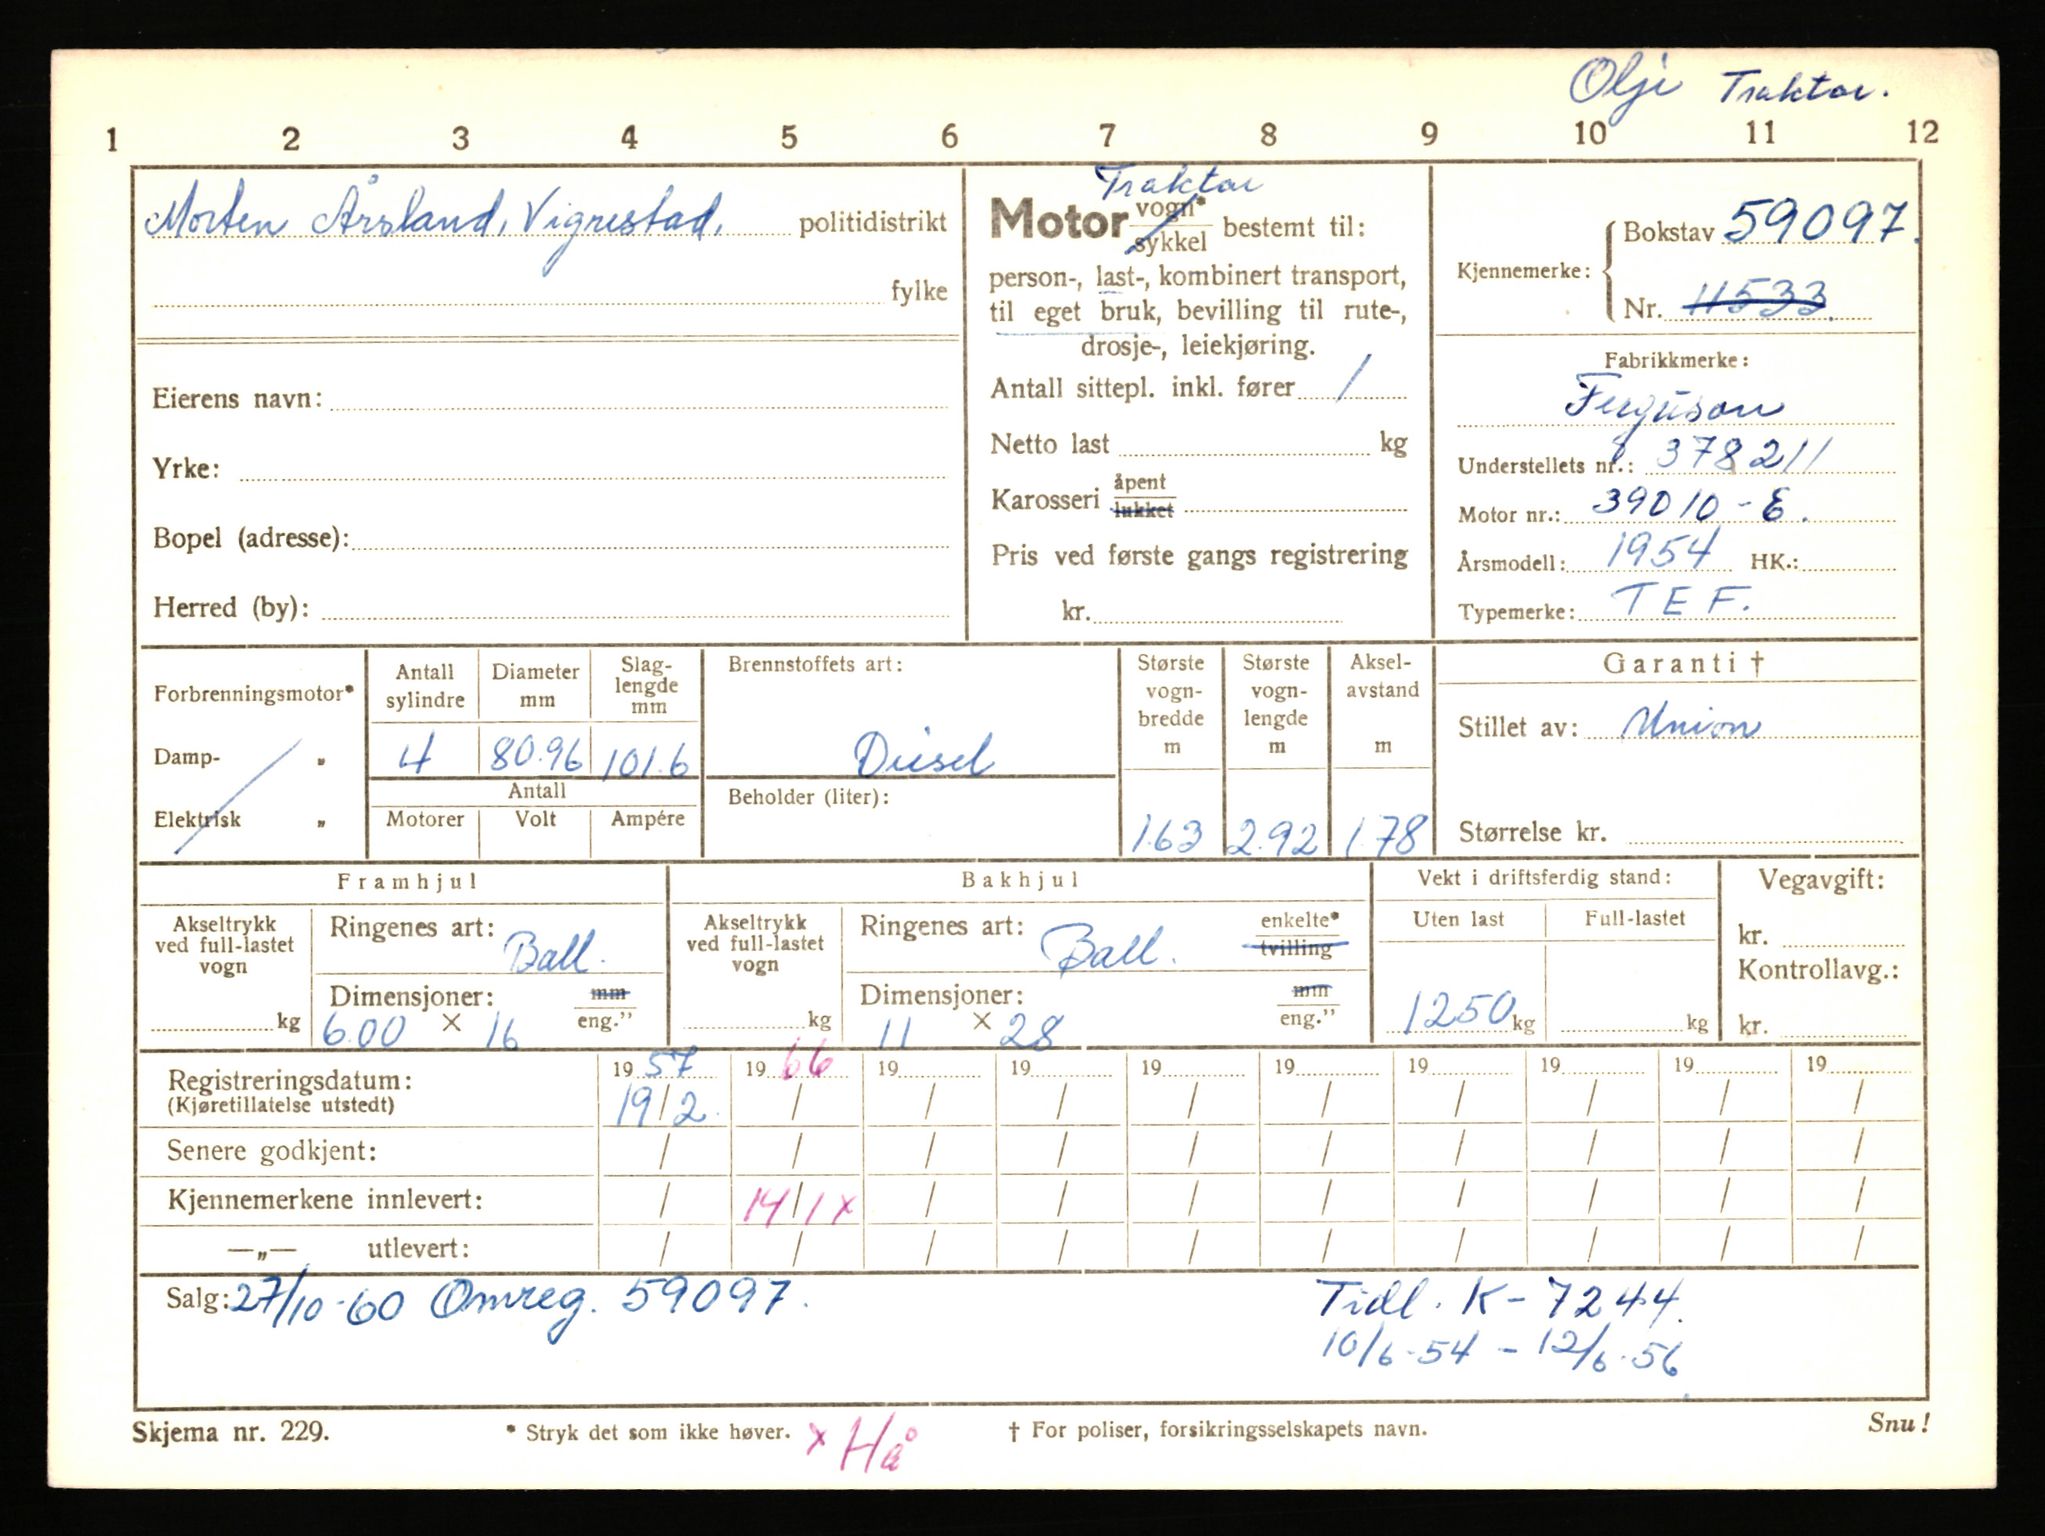 Olje Traktor.
1 2 3 4 5 6 7 8 9 10 11 12
Morten Årsland, Vigrestad, politidistrikt
fylke
Eierens navn:
Yrke:
Bopel (adresse):
Herred (by):
Traktor
Motor vogn* sykkel bestemt til:
person-, last-, kombinert transport,
til eget bruk, bevilling til rute-,
drosje-, leiekjøring.
Antall sittepl. inkl. fører 1
Netto last kg
Karosseri åpent lukket
Pris ved første gangs registrering
kr.
Kjennemerke: Bokstav 59097.
Nr. 11533.
Fabrikkmerke:
Ferguson
Understellets nr.: 378211
Motor nr.: 39010-E.
Årsmodell: 1954 HK.:
Typemerke: TEF.
Forbrenningsmotor*
Damp- „
Elektrisk „
Antall sylindre Diameter mm Slag-lengde mm
4 80.96 101.6
Antall
Motorer Volt Ampére
Brennstoffets art:
Diesel
Beholder (liter):
Største vogn-bredde m Største vogn-lengde m Aksel-avstand m
1.63 2.92 1.78
Garanti †
Stillet av: Union
Størrelse kr.
Framhjul
Akseltrykk ved full-lastet vogn
kg
Ringenes art: Ball.
Dimensjoner: mm eng.”
6.00 × 16
Bakhjul
Akseltrykk ved full-lastet vogn
kg
Ringenes art: Ball. enkelte* tvilling
Dimensjoner: mm eng.”
11 × 28
Vekt i driftsferdig stand:
Uten last Full-lastet
1250 kg kg
Vegavgift:
kr.
Kontrollavg.:
kr.
Registreringsdatum: 19 57 19 66 19 19 19 19 19 19 19 19
(Kjøretillatelse utstedt) 19/2. / / / / / / / / /
Senere godkjent: / / / / / / / / / /
Kjennemerkene innlevert: / 14/1 x / / / / / / / /
—„— utlevert: / / / / / / / / / /
Salg: 27/10-60 Omreg. 59097. Tidl. K-7244.
10/6-54 - 12/6-56
Skjema nr. 229. * Stryk det som ikke høver. x Hå † For poliser, forsikringsselskapets navn. Snu!